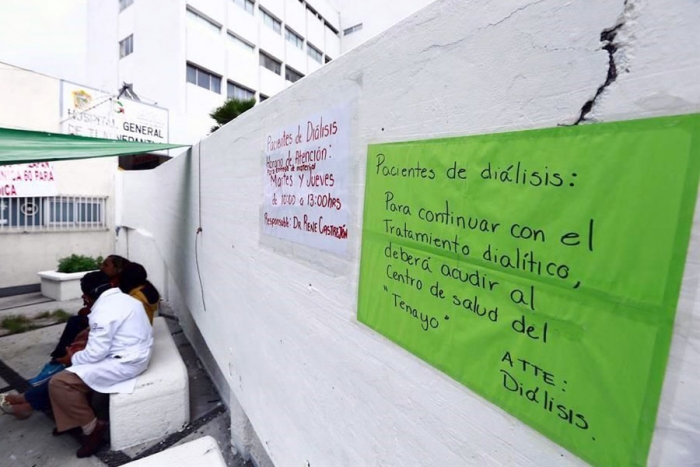 HOSPITAL GENERAL
DE TLALNEPANTLA
60 PARA
Pacientes de Diálisis
Horario de Atención:
Para entrega de material
Martes y Jueves
de 10:00 a 13:00hrs
Responsable: Dr. Rene Castrejón
Pacientes de diálisis:
Para continuar con el
Tratamiento dialítico,
deberá acudir al
Centro de salud del
"Tenayo"
ATTE:
Diálisis.